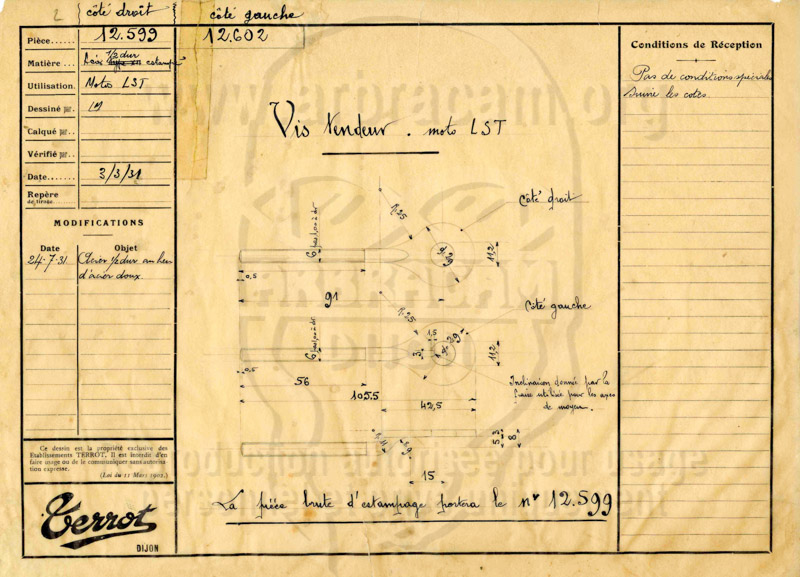 côté droit
côté gauche
Pièce...... 12.599
12.602
Matière... Acier 1/2 dur estampé
Utilisation. Motos LST
Dessiné par.
Calqué par..
Vérifié par..
Date...... 3/3/31
Repère
de tirage
MODIFICATIONS
Date Objet
24-7-31 Acier 1/2 dur au lieu
d'acier doux.
Ce dessin est la propriété exclusive des
Etablissements TERROT. Il est interdit d'en
faire usage ou de le communiquer sans autorisa-
tion expresse.
(Loi du 11 Mars 1902.)
Terrot
DIJON
Vis Tendeur. moto LST
Côté droit
6 pas 1,00 à dr
11,2
0,5
91
Côté gauche
6 pas 1,00 à dr
1,5
3
29
11,2
0,5
56
105.5
42,5
Inclinaison donnée par la
fraise utilisée pour les axes
de moyeu.
5,3
8
15
La pièce brute d'estampage portera le n° 12.599
Conditions de Réception
Pas de conditions spéciales
Suivre les cotes.